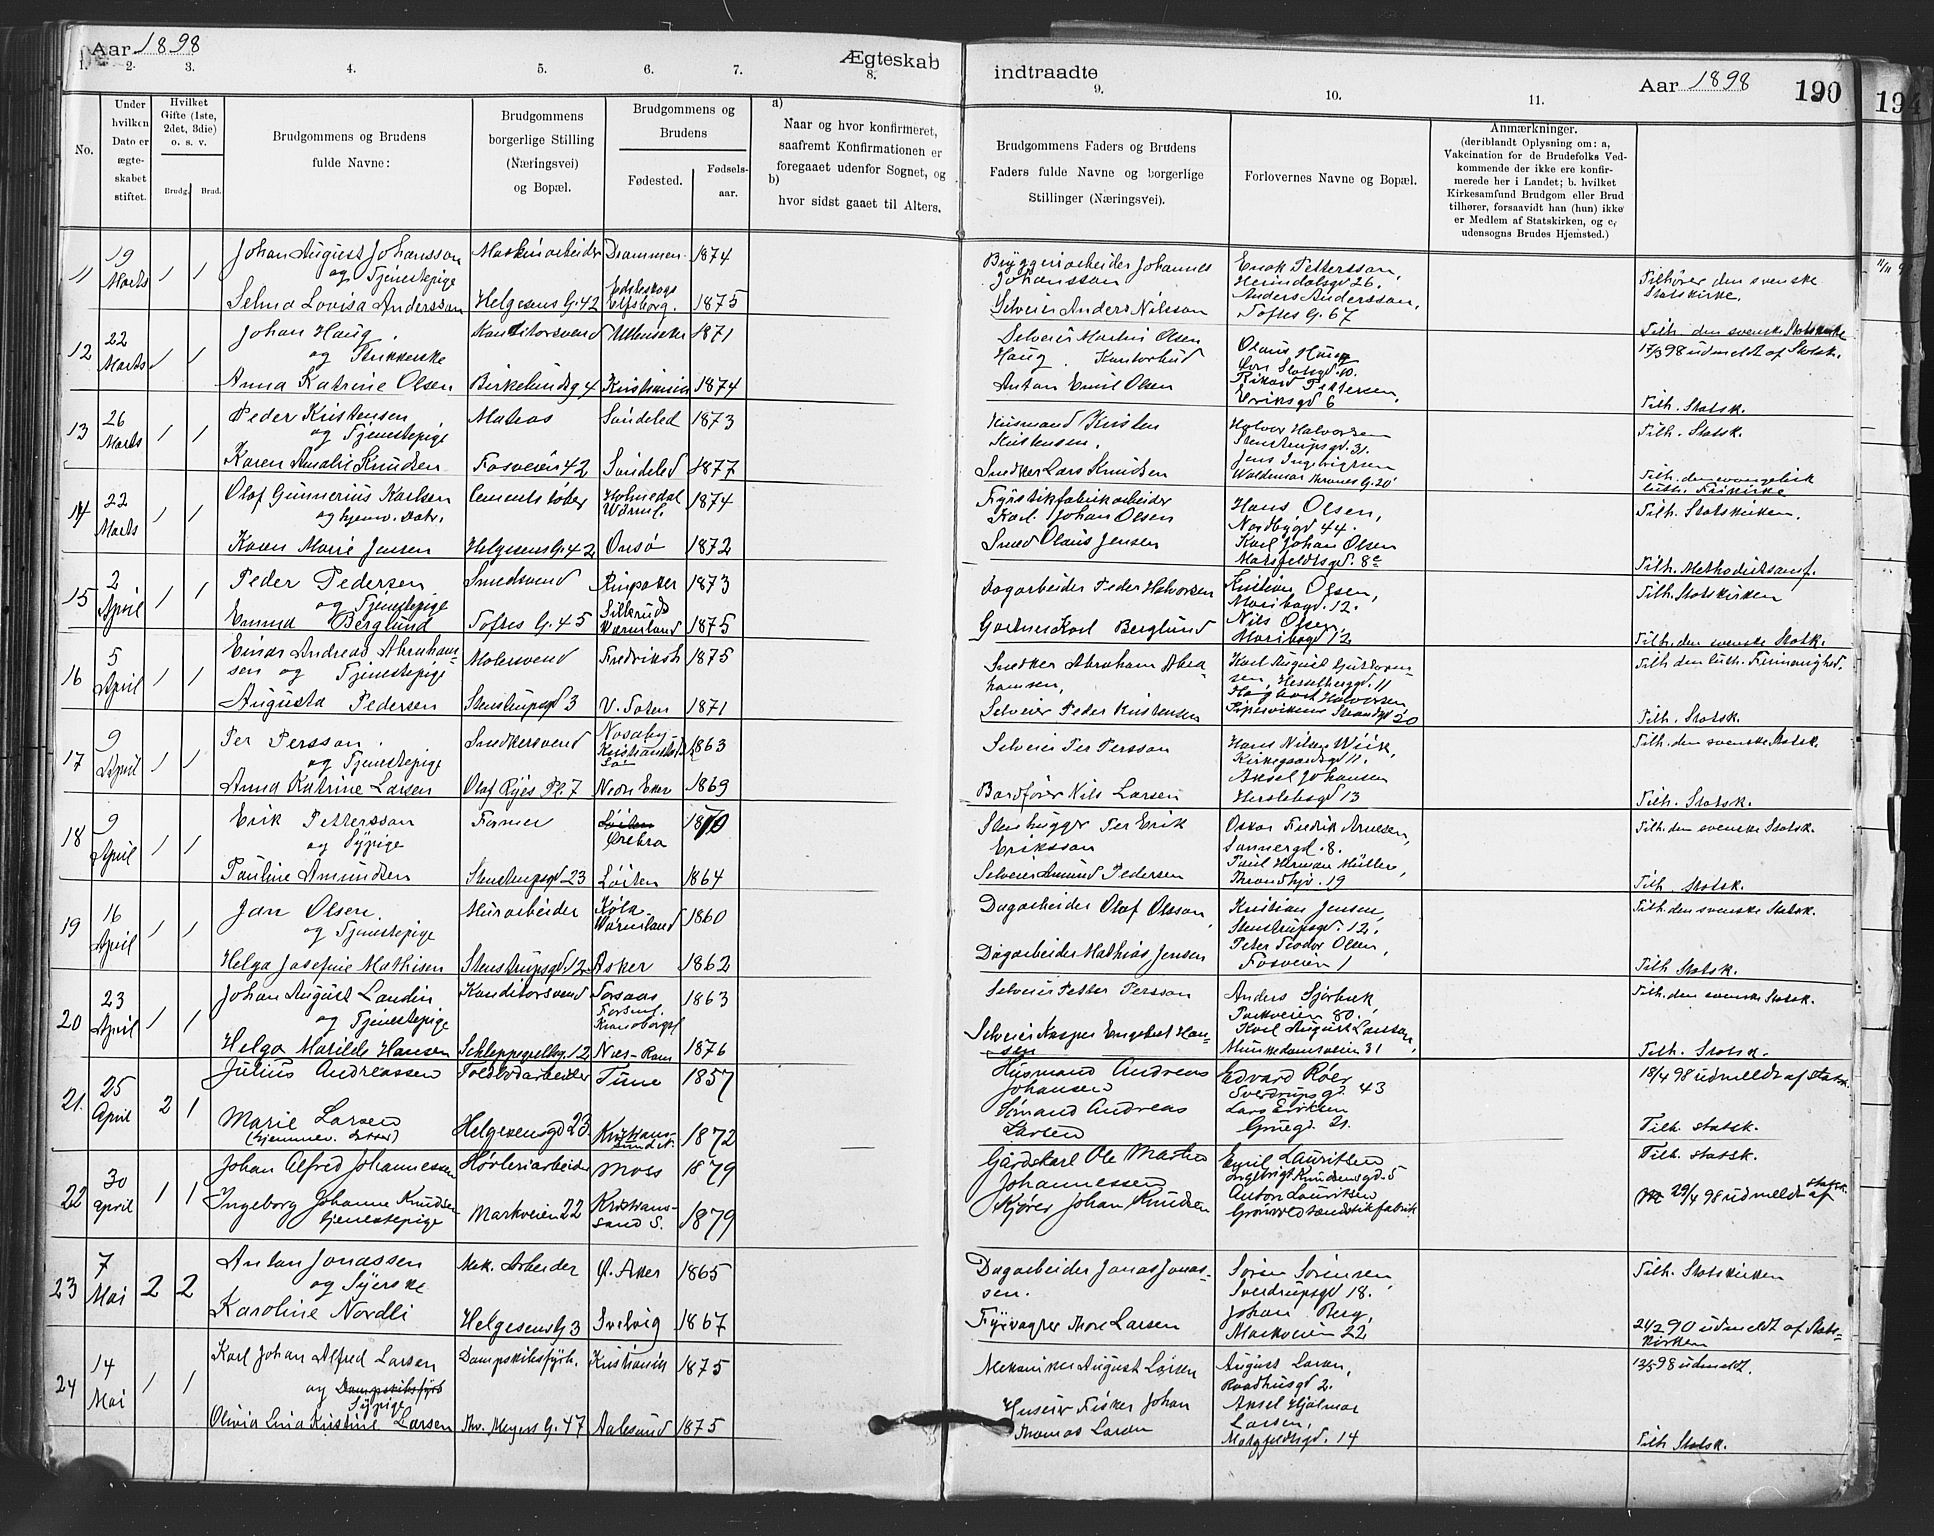 Aar 1898
Ægteskab
indtraadte
Aar 1898
190
194
1. 2. 3. 4. 5. 6. 7. 8. 9. 10. 11.
No.
Under hvilken Dato er ægteskabet stiftet.
Hvilket Gifte (1ste, 2det, 3die) o. s. v.
Brudg. Brud.
Brudgommens og Brudens fulde Navne:
Brudgommens borgerlige Stilling (Næringsvei) og Bopæl.
Brudgommens og Brudens
Fødested.
Fødselsaar.
a) Naar og hvor konfirmeret, saafremt Konfirmationen er foregaaet udenfor Sognet, og
b) hvor sidst gaaet til Alters.
Brudgommens Faders og Brudens Faders fulde Navne og borgerlige Stillinger (Næringsvei).
Forlovernes Navne og Bopæl.
Anmærkninger.
(deriblandt Oplysning om: a, Vakcination for de Brudefolks Vedkommende der ikke ere konfirmerede her i Landet; b. hvilket Kirkesamfund Brudgom eller Brud tilhører, forsaavidt han (hun) ikke er Medlem af Statskirken, og c, udensogns Brudes Hjemsted.)
11 19 Marts 1 1
Johan August Johansson og Tjenestepige
Selma Lovisa Andersson
Maskinarbeider
Helgesens G. 42
Drammen 1874
Elfsborg. 1875
Bryggeriarbeider Johannes Johansson
Selveier Anders Nilsson
Enok Pettersson, Heimdalsgd 26.
Anders Andersson, Toftes G. 67
Tilhører den svenske Statskirke.
Tilh. den svenske Statskirke
12 22 Marts 1 1
Johan Haug og Strikkerske
Anna Katrine Olsen
Konditorsvend
Birkelundsg 4
Ullensaker 1871
Kristiania 1874
Selveier Martin Olsen Haug. Kontorbud
Anton Emil Olsen
Olaus Haug
Rikard Pettersen, Eriksgd 6
17/3 98 udmeldt af Statsk.
Tilh. Statsk.
13 26 Marts 1 1
Peder Kristensen og Tjenestepige
Karen Amalie Knudsen
Matros
Fosveien 42
Søndeled 1873
Søndeled 1877
Husmand Kristen Kristensen.
Snedker Lars Knudsen
Halvor Halvorsen Stenstrupsgd. 31.
Jens Ingebrigtsen Waldemar Thranes G. 20
Tilh. Statsk.
Tilh. den evangelisk luth. Frikirke
14 22 Marts 1 1
Olaf Gunnerius Karlsen og hjemv. Datr.
Karen Marie Jensen
Cementstøber
Helgesens G. 42
Holmedal Wärml. 1874
Onsø 1872
Fyrstikfabrikarbeider Karl Johan Olsen
Smed Olaus Jensen
Hans Olsen, Nordbygd 44.
Karl Johan Olsen
Tilh. Statskirken.
Tilh. Methodistsamf.
15 2 April 1 1
Peder Pedersen og Tjenestepige
Emma Berglund
Smedsvend
Toftes G. 45
Ringsaker 1873
Silleruds Wärmland 1875
Dagarbeider Peder Halvorsen
Gartner Karl Berglund
Kristian Olsen, Maribogd. 12.
Nils Olsen Maribogd 12
Tilh. Statskirken
Tilh. den svenske Statsk.
16 5 April 1 1
Einar Andreas Abrahamsen og Tjenestepige
Augusta Pedersen
Malersvend
Stenstrupsgd 3
Fredriksh 1875
V. Toten 1871
Snedker Abraham Abrahamsen,
Selveier Peder Kristensen
Karl August Guttormsen, Hesselbergsgd. 11
Hagbart Halvorsen Pipervikens Strandgd 20
Tilh den luth. Frimenighed.
Tilh. Statsk.
17 9 April 1 1
Per Persson. og Tjenestepige
Anna Katrine Larsen
Snedkersvend
Olaf Ryes Pl. 7
Nosaby Kristianstad Län 1863
Nedre Eker 1869
Selveier Per Persson
Bordfører Nils Larsen
Hans Nilsen Wiik, Kirkegaardsgd 11.
Aksel Johansen Herslebsgd 13
Tilh. den svenske Statsk.
Tilh. Statsk.
18 9 April 1 1
Erik Pettersson og Sypige
Pauline Amundsen
Former
Stenstrupsgd 23
Løiten Ørebro 1870
Løiten 1864
Stenhugger Per Erik Eriksson
Selveier Amund Pedersen
Oskar Fredrik Arnesen, Sannergd. 8.
Paul Herman Müller, Throndhjv. 19
Tilh. den svenske Statsk.
Tilh. Statsk.
19 16 April 1 1
Jan Olsen. og Tjenestepige
Helga Josefine Mathisen
Murarbeider
Stenstrupsgd 12
Køla Wärmland 1860
Asker 1862
Dagarbeider Olof Olsson,
Dagarbeider Mathias Jensen
Kristian Jensen, Stenstrupsgd. 12.
Peter Teodor Olsen, Fosveien 1
Tilh. den svenske Statsk.
Tilh Statsk.
20 23 April 1 1
Johan August Landin og Tjenestepige
Helga Matilde Hansen
Konditorsvend
Schleppegrellsg. 12
Torsaas 1863
Næs-Rom 1876
Selveier Petter Persson
Selveier Kasper Engebret Hansen
Anders Sjørbuk Parkveien 80.
Karl August Larsson, Munkedamsveien 31
Tilh. den svenske Statsk.
Tilh. Statsk.
21. 25 April 2 1
Julius Andreassen
Marie Larsen
(hjemmev. Datter)
Toldbodarbeider
Helgesensgd 23
Tune 1857
Kristianssund N. 1872
Husmand Andreas Johansen
Sømand Andreas Larsen
Edvard Røer Sverdrupsgd. 43
Lars Eriksen Gruegd. 21.
18/4 98 udmeldt af Statsk.
Tilh. Statsk.
22 30 April 1 1
Johan Alfred Johannessen
Ingeborg Johanne Knudsen tjenestepige
Høvleriarbeider
Markveien 22
Moss 1879
Kristianssand S. 1879
Gårdskarl Ole Martin Johannessen
Kjører Johan Knudsen
Emil Lauritsen Ingebrigt Knudsensgd. 5
Anton Lauritsen Grønvold tændstikfabrik
Tilh. Statsk.
29/4 98 udmeldt af Statsk.
23 7 Mai 2 2
Anton Jonassen og Syerske
Karoline Nordli
Mek. Arbeider
Helgesens G 3
Ø. Aker 1865
Svelvig 1867
Dagarbeider Jonas Jonassen.
Fyrvagter Thore Larsen
Sören Sörensen, Sverdrupsgd 18.
Johan Berg, Markveien 22
Tilh. Statskirken
24/2 90 udmeldt af Statskirken
24 14 Mai 1 1
Karl Johan Alfred Larsen og Dampskibsfyrb Sypige
Olivia Lina Kristine Larsen
Dampskibsfyrb.
Thv. Meyers G. 47
Kristiania 1875
Aalesund 1875
Mekaniker August Larsen
Huseier Fisker Johan Thomas Larsen
August Larsen, Raadhusgd 2.
Aksel Hjalmar Larsen, 14
13/5 98 udmeldt.
Tilh Statsk.